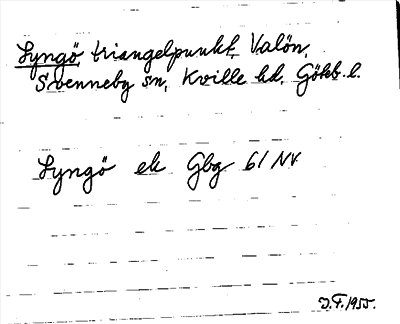 Lyngö, triangelpunkt, Valön,
Svenneby sn, Kville hd, Göteb. l.
Lyngö ek Gbg 61 NV
J.F. 1955.